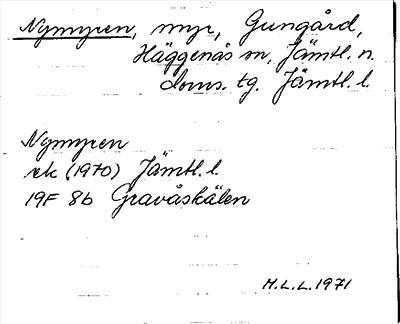 Nymyren, myr, Gungård,
Häggenås sn, Jämtl. n.
doms. tg. Jämtl. l.
Nymyren
ek (1970) Jämtl. l.
19F 8b Gravåskälen
H.L.L. 1971